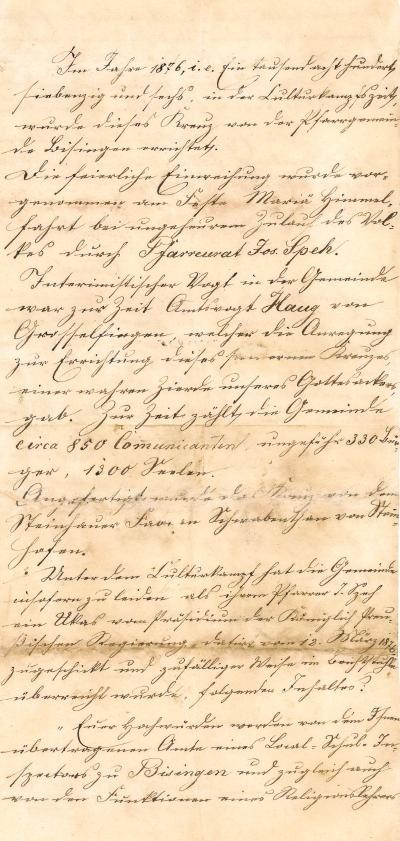 Im Jahre 1876, i. e. Ein tausend acht hundert
siebenzig und sechs, in der Culturkampfszeit,
wurde dieses Kreuz von der Pfarrgemein-
de Bisingen errichtet.
Die feierliche Einweihung wurde vor-
genommen am Feste Mariä Himmel-
fahrt bei ungeheurem Zulauf des Vol-
kes durch Pfarrcurat Jos. Speh.
Interimistischer Vogt in der Gemeinde
war zur Zeit Amtsvogt Haug von
Grosselfingen, welcher die Anregung
zur Errichtung dieses steinernen Kreuzes
einer wahren Zierde unseres Gottesackers,
gab. Zur Zeit zählt die Gemeinde
circa 850 Comunicanten, ungefähr 330 Bür-
ger, 1300 Seelen.
Angefertigt wurde das Kreuz von dem
Steinhauer Schwabenthan von Stein-
hofen.
Unter dem Culturkampf hat die Gemeinde
insofern zu leiden als ihrem Pfarrer J. Speh
ein Ukas vom Präsidium der Königlich Preu-
ßischen Regierung, datirt vom 12. März 1876
zugeschickt und zufälliger Weise im Beichtstuhle
überreicht wurde, folgenden Inhaltes:
„Euer Hochwürden werden von dem Ihnen
übertragenen Amte eines Local-Schul-In-
spectors zu Bisingen und zugleich auch
von den Funktionen eines Religionslehrers